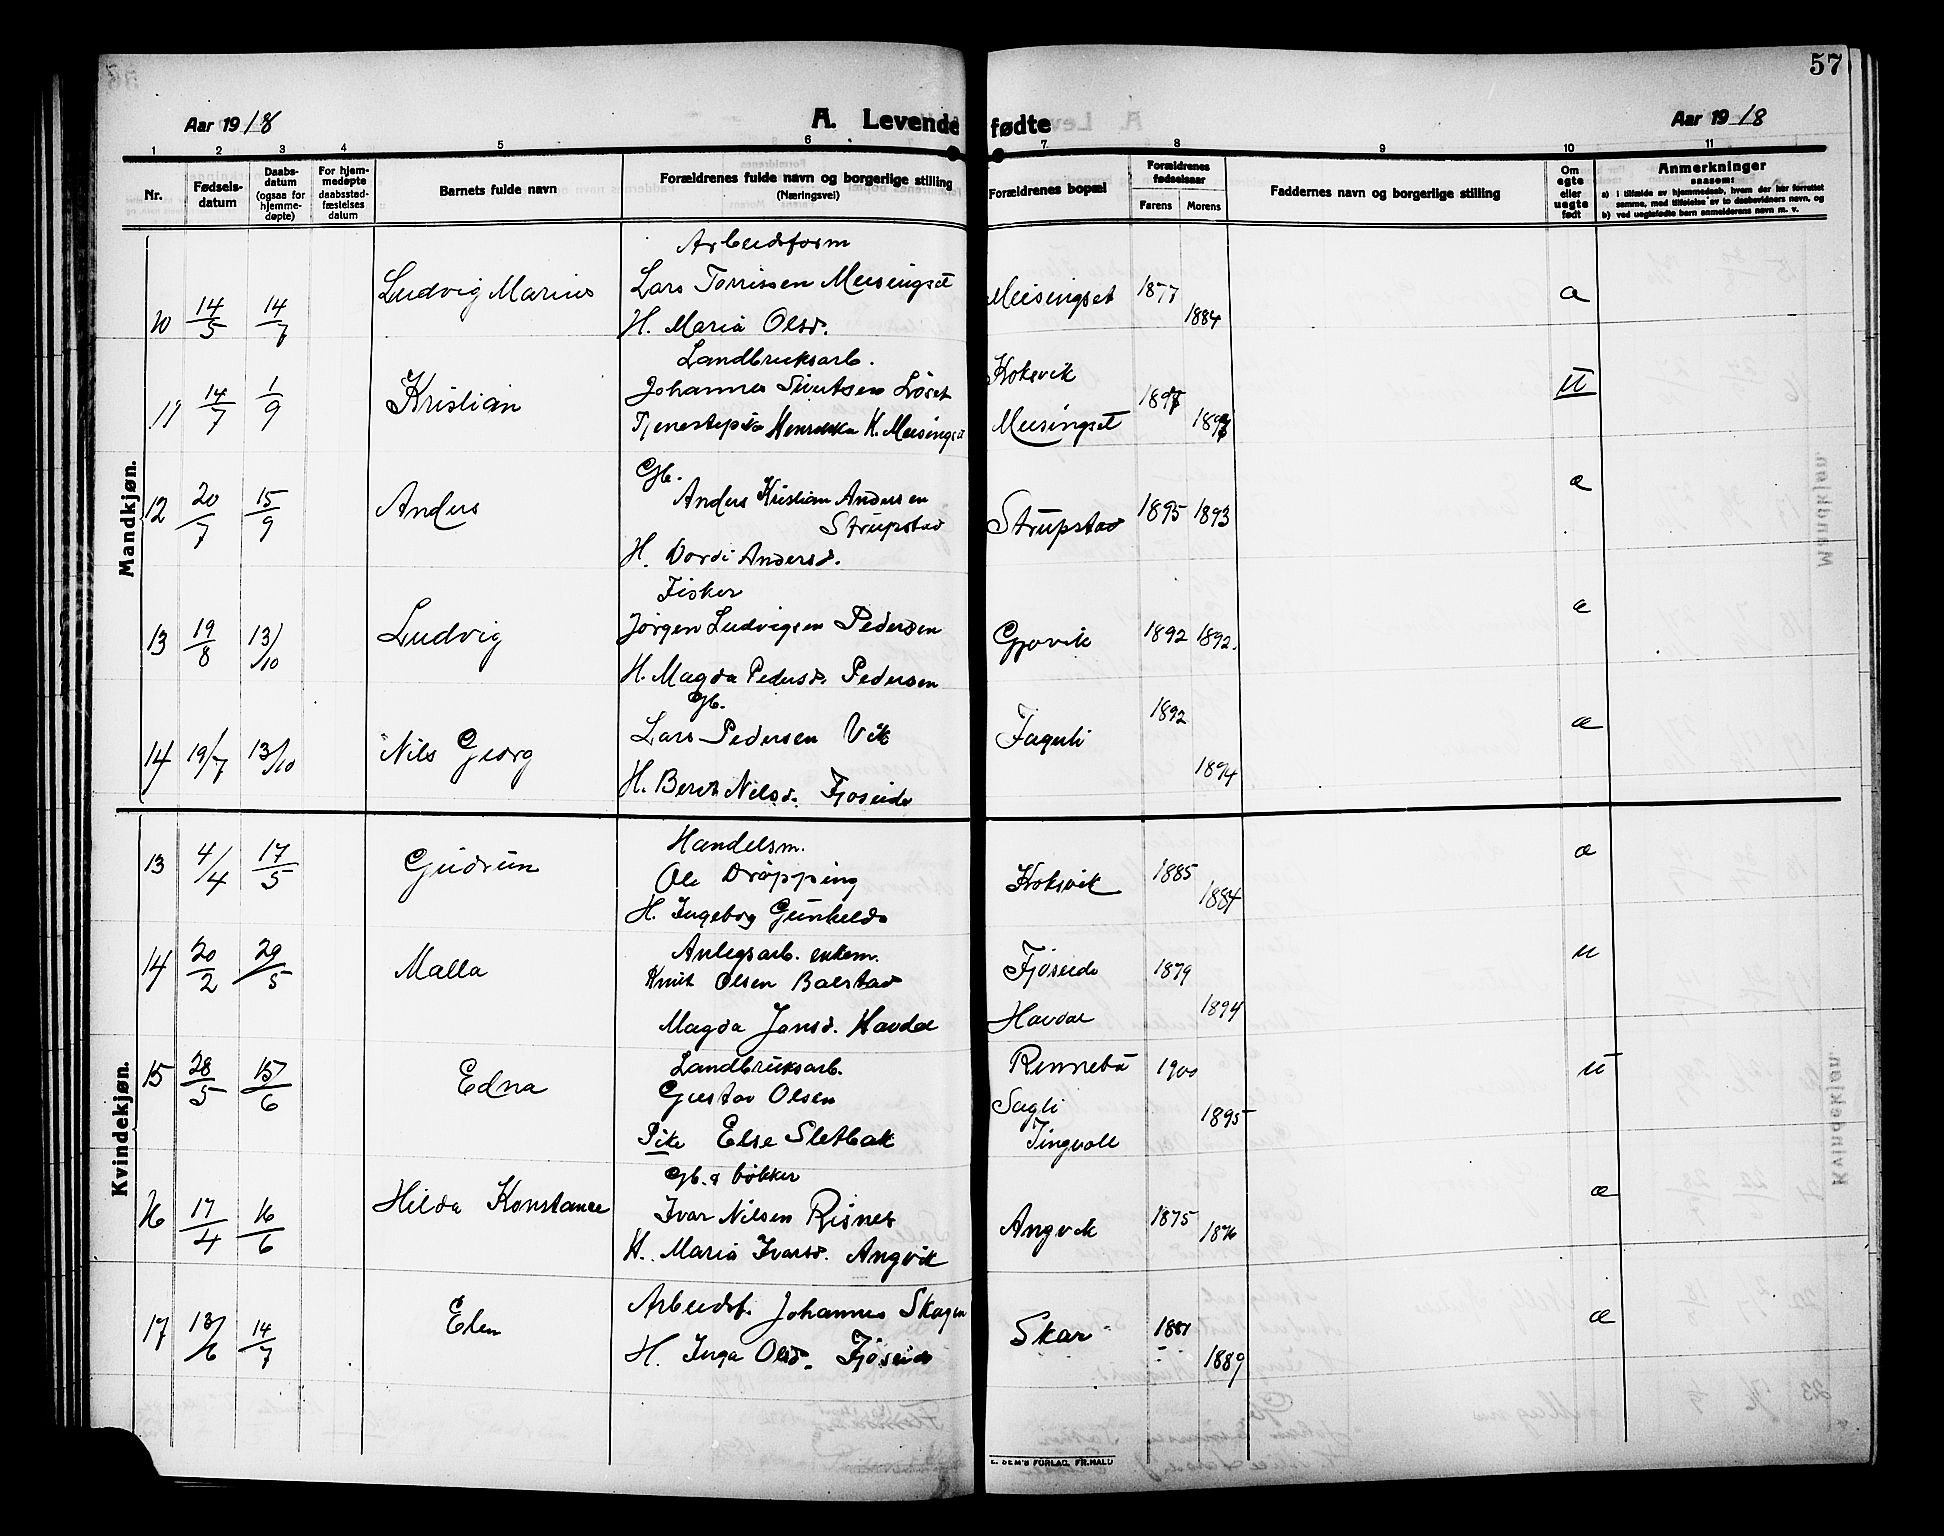 57
Aar 1918 A. Levende fødte Aar 1918
1 2 3 4 5 6 7 8 9 10 11
Nr. Fødsels-datum Daabs-datum (ogsaa for hjemme-døpte) For hjem-medøpte daabsstad-fæstelses datum Barnets fulde navn Forældrenes fulde navn og borgerlige stilling (Næringsvei) Forældrenes bopæl Forældrenes fødselsaar Farens Morens Faddernes navn og borgerlige stilling Om egte eller uegte født Anmerkninger saasom:
a) i tilfælde av hjemmedaab, hvem der har forrettet samme, med tilføielse av to daabsvidners navn, og
b) ved uegtefødte barn anmelderens navn m. v.
Mandkjøn.
Arbeidsform
Ludvig Marius Lars Torrissen Meisingset Meisingset 1877 æ
14/5 14/7 H. Maria Olsd. 1884
Landbruksarb.
Kristian Johannes Sivertsen Löset Koksvik U
14/7 1/9 Tjenestepike Henrikka H. Meisingset Meisingset
Gb.
12 20/7 15/9 Anders Anders Kristian Andersen Strupstad Strupstad 1895 1893 æ
H. Dordi Andersd.
Fisker
13 19/8 13/10 Ludvig Jörgen Ludvigsen Pedersen Gjøvik 1892 1892. æ
H. Magda Pedersd. Pedersen
Gb.
14 19/7 13/10 Nils Georg Lars Pedersen Vik Fagerli 1892 æ
H. Beret Nilsd. Fjøseide 1894
Kvindekjøn.
Handelsm.
13 4/4 17/5 Gudrun Ole Dröpping Koksvik 1885 æ
H. Ingeborg Gunhilds 1884
Anlegsarb. enkem.
14 20/2 29/5 Malla Knut Olsen Balstad Fjøseide 1879 u
Magda Jonsd. Havdal Havdal 1894
Landbruksarb.
15 28/5 15/6 Edna Gustav Olsen Rennebu 1900 u
Pike Else Sletbak Sagli Tingvoll 1895
Gb. & bökker
16 17/4 16/6 Hilda Konstance Ivar Nilsen Risnes Angvik 1875 1876 æ
H. Maria Ivarsd. Angvik
17 13/6 14/7 Elen Arbeidsf. Johannes Skagen Skar 1881 æ
H. Inga Olsd. Fjøseide 1889
E. SEM'S FORLAG, FR.HALD